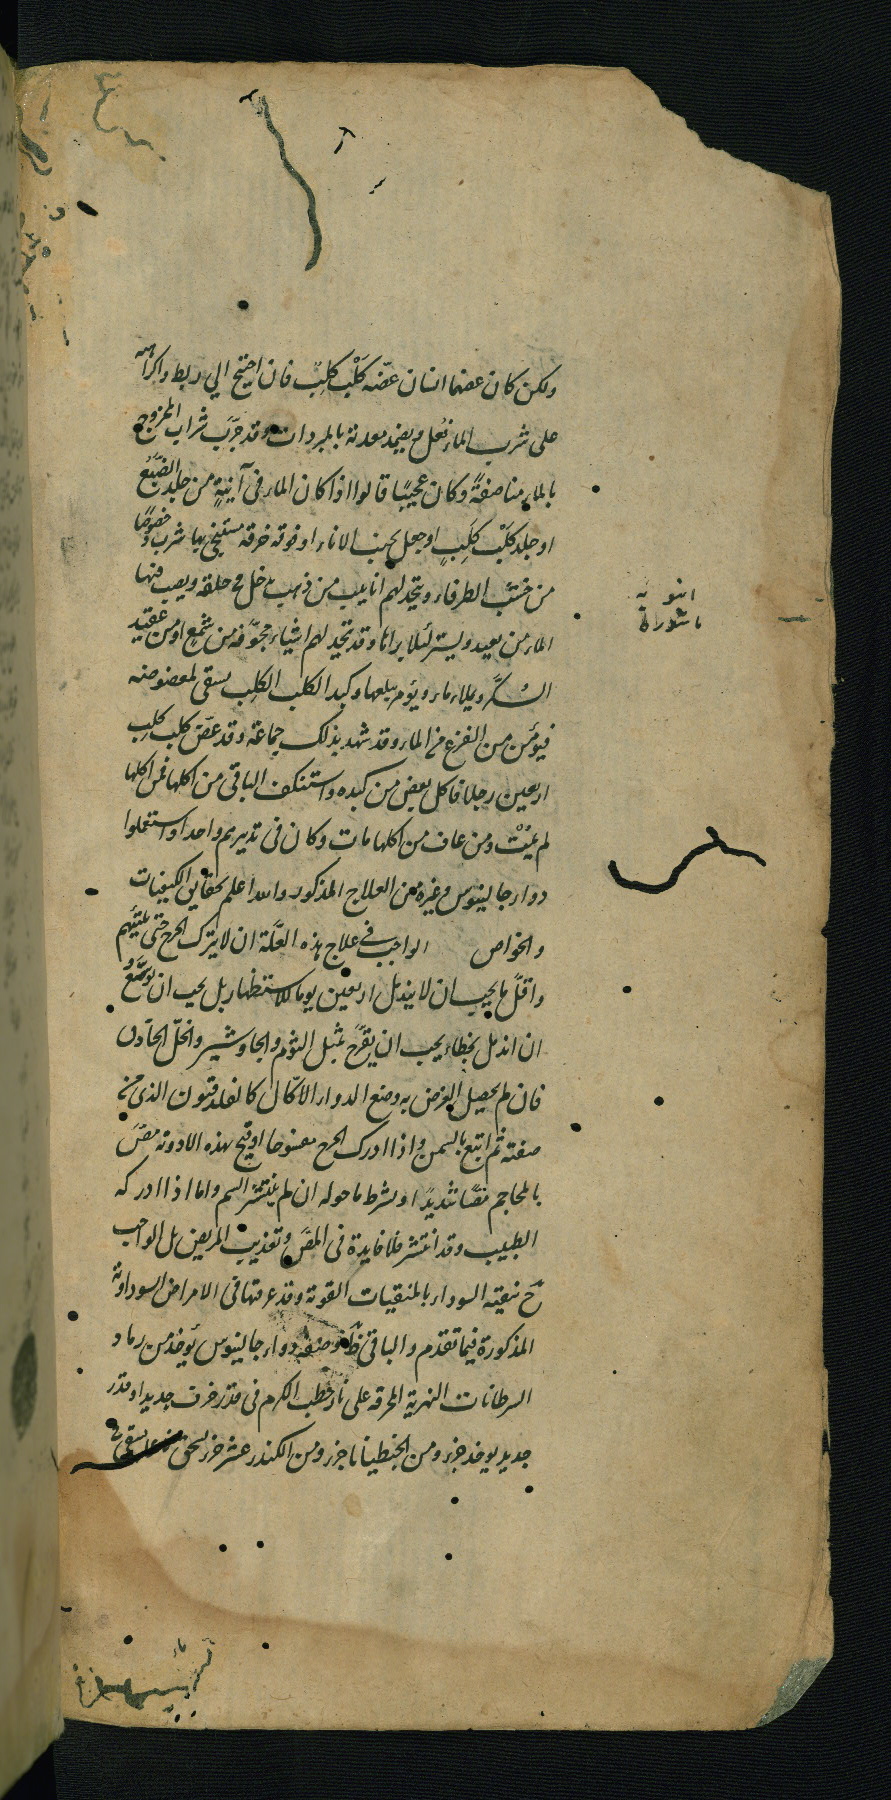 ولكن كان عضها انسان عضّه كَلْب كلِب فان احتيج الي ربط واكراه
على شرب الماء فُعل و يضمد معدته بالمبردات وقد جرّب شراب الممزوج
بالماء مناصفةً وكان عجيبًا قالوا اذا كان الماء فى آنيةٍ من جلد الضبُع
او جلد كَلْب كَلِبٍ او جعل تحت الاناء او فوقه خرقه مستنجى بها شرب وخصوصًا
من خشب الطرفاء ويتخذ لهم انابيب من ذهب يدخل فى حلقه ويصب فيها
الماء من بعيد ويستر لئلا يراها وقد يتخذ لهم اشياء مجوّفة من شمع او من عقيد
السُكّر ويملاء ماء ويؤمر ببلعها وكبد الكلب الكلِب يسقى لمعضوضه
فيؤمَن من الفزع من الماء وقد شهد بذلك جماعة وقد عَضّ كلب كلِب
اربعين رجلا فاكل بعض من كبده واستنكف الباقى من اكلها فمن اكلها
لم يمُتْ ومن عاف من اكلها مات وكان فى تدبيرهم واحدا واستعملوا
دواء جالينوس وغيره من العلاج المذكور والله اعلم بحقايق الكيفيات
والخواص الواجب فى علاج هذه العلّة ان لا يترك الجرح حتى يلتئم
واقلّ ما يجب ان لا يندمل اربعين يوما للاستظهار بل يجب ان يوسّع و
ان اندمل بخطاء يجب ان يقرَّح بمثل الثوم والجاوشير والخلّ الحاذق
فان لم يحصل الغرض به وضع الدواء الاكّال كالفلدفيون الذى مَرّ
صفته ثم اتبع بالسمن واذا ادرك الجرح مفتوحا او قيح بهذه الادوية مصّ
بالمحاجم مصًّا شديدً او يشرط ما حوله ان لم ينتشر السم واما اذا ادركه
الطبيب وقد انتشر فلا فايدة فى المصّ وتعذيب المريض بل الواجب
ح تنقيه السوداء بالمنقيات القوية وقد عرفتها فى الامراض السوداوية
المذكورة فيما تقدم والباقى ظَ وصفه دواء جالينوس يؤخذ من رماد
السرطانات النهرية المحرقه على نار حطب الكرم فى قدر خزف جديد او قدر
جديد يوخذ جزء ومن الجنطيانا جزء ومن الكندر عشر جزء يسحق
انبوبه
ماشورة